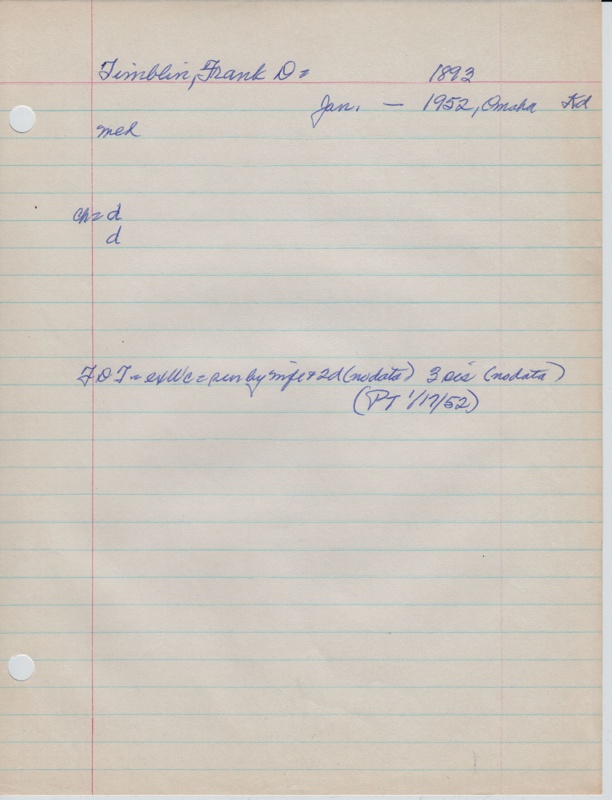 Timblin, Frank D = 1893
Jan. — 1952, Omaha
med
ch = d
d
FDT = ex Wc = sur by wife + 2d (no data) 3 sis (no data)
(PT 1/17/52)